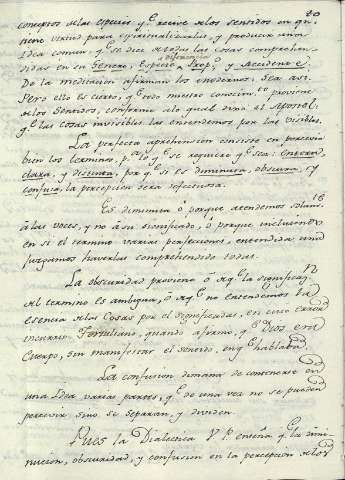 20
conceptos de las especies q.e recive de los sentidos en qn.
tiene virtud para espiritualizarlas, y producir una
Idea comun q.e se dice de todas las cosas comprehen-
diferencia
didas en su Genero, Especie, Prop.o y Accidente.
De la meditacion afirman los modernos. Sea asi
Pero ello es cierto, q.e todo nuestro conocim.to proviene
de los Sentidos, conforme a lo qual dixo el Apostol:
q.e las cosas invisibles las entendemos por las visibles.
La perfecta aprehension consiste en percevir
bien los terminos, p.a lo q.l se requiere q.e sea: entera
clara, y distinta, por q.e si es diminuta, obscura, y
confusa, la percepcion sera defectuosa.
Es diminuta ó porque atendemos solam.te
á las voces, y no á su significado, ó porque incluiendo
en si el termino varias perfecciones, entendida una
juzgamos haverlas comprehendido todas.
La obscuridad proviene ó de q.e la significaz.n
del termino es ambigua, ó de q.e no entendemos la
esencia de las cosas por el significadas, en cuio error
incurrió Tertuliano, quando afirmó, q.e Dios era
Cuerpo, sin manifestar el sentido, en q.e hablaba.
La confusion dimana de contenerse en
una Idea varias partes, q.e de una vez no se pueden
percevir sino se separan, y dividen.
Pues la Dialectica V.P. enseña q.e la dimi-
nucion, obscuridad, y confusion en la percepcion de los